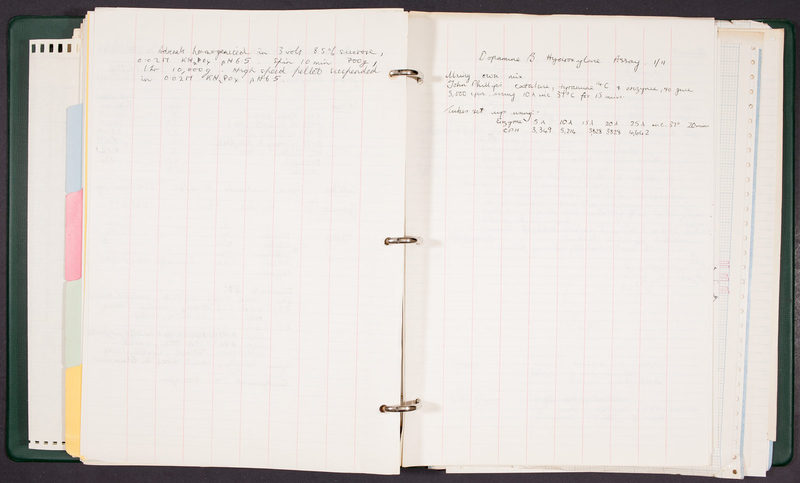 Adrenals homogenised in 3 vols 8.5% sucrose,
0.02M KH2PO4 pH 6.5. Spin 10 min 700g,
1 hr 10,000g High speed pellet suspended
in 0.02M KH2PO4 pH 6.5.
Dopamine B Hydroxylase Assay 1/11
Using own mix
John Phillips catalase, tyramine 14C + enzyme, no
5,000 cpm, using 10λ inc. 37°C for 15 mins
Tubes set up using:-
Enzyme 5λ 10λ 15λ 20λ 25λ inc. 37° 20min
CPM 3,349 5,216 3828 3928 4,662